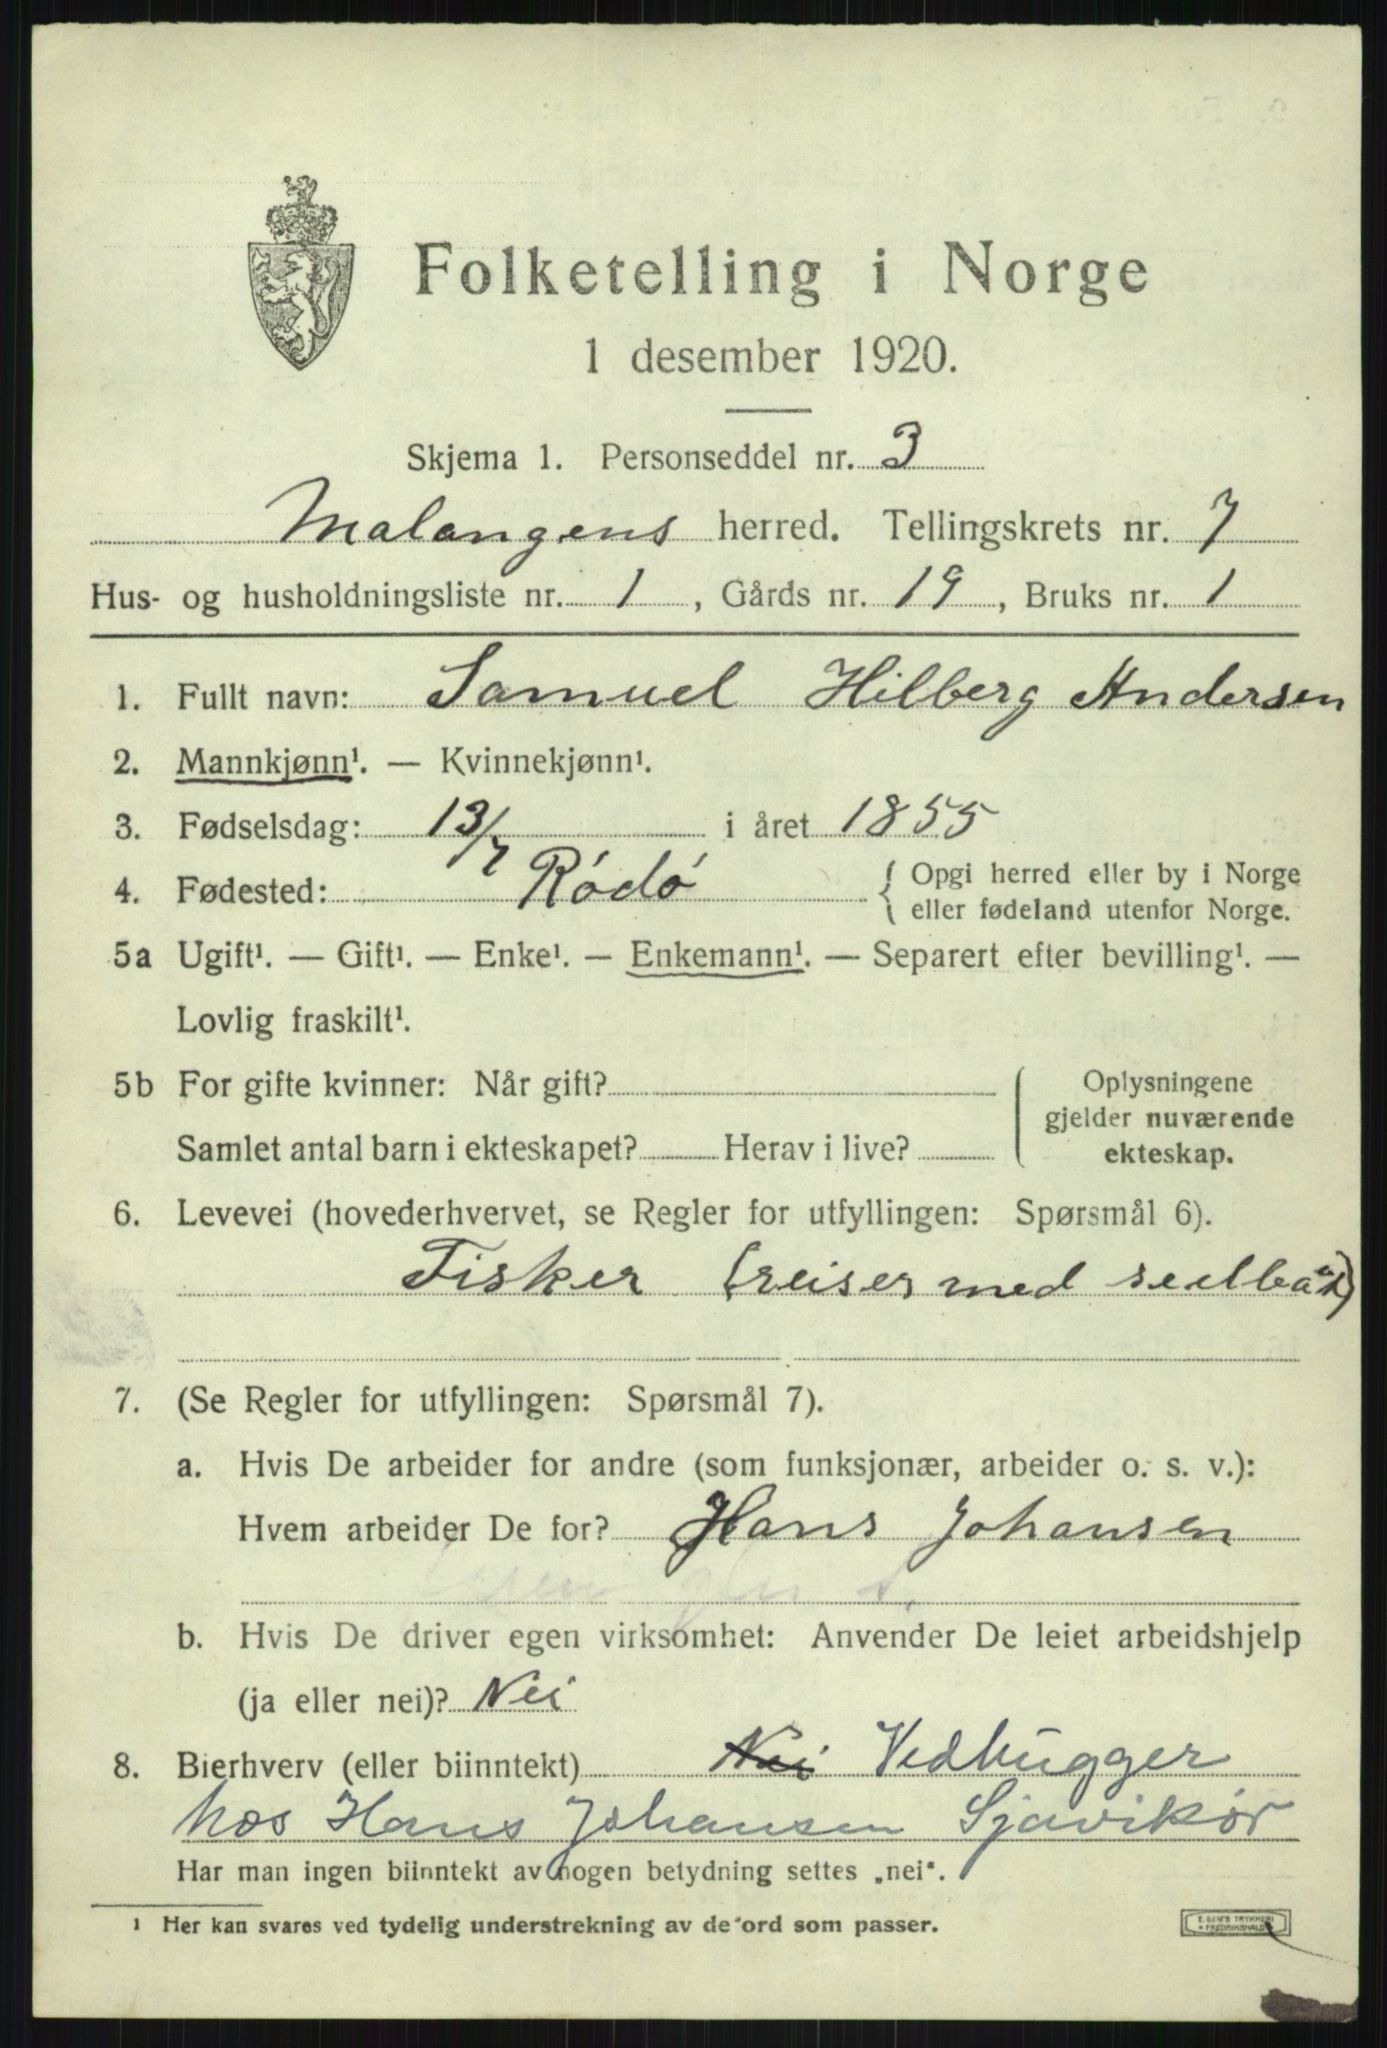 Folketelling i Norge
1 desember 1920.
Skjema 1. Personseddel nr. 3
Malangens herred. Tellingskrets nr. 7
Hus- og husholdningsliste nr. 1, Gårds nr. 19, Bruks nr. 1
1. Fullt navn: Samuel Hilberg Andersen
2. Mannkjønn¹. — Kvinnekjønn¹.
3. Fødselsdag: 13/7 i året 1855
4. Fødested: Ródó { Opgi herred eller by i Norge
eller fødeland utenfor Norge.
5a Ugift¹. — Gift¹. — Enke¹. — Enkemann¹. — Separert efter bevilling¹. —
Lovlig fraskilt¹.
5b For gifte kvinner: Når gift?
Samlet antal barn i ekteskapet? Herav i live?
Oplysningene
gjelder nuværende
ekteskap.
6. Levevei (hovederhvervet, se Regler for utfyllingen: Spørsmål 6).
Fisker (reiser med
7. (Se Regler for utfyllingen: Spørsmål 7).
a. Hvis De arbeider for andre (som funksjonær, arbeider o. s. v.):
Hvem arbeider De for? Hans Johansen
b. Hvis De driver egen virksomhet: Anvender De leiet arbeidshjelp
(ja eller nei)? Nei
8. Bierhverv (eller biinntekt) Nei Vedhugger
hos Hans Johansen Sjavikór
Har man ingen biinntekt av nogen betydning settes „nei“.
1 Her kan svares ved tydelig understrekning av de ord som passer.
E. SEM'S TRYKKERI
FREDRIKSHALD